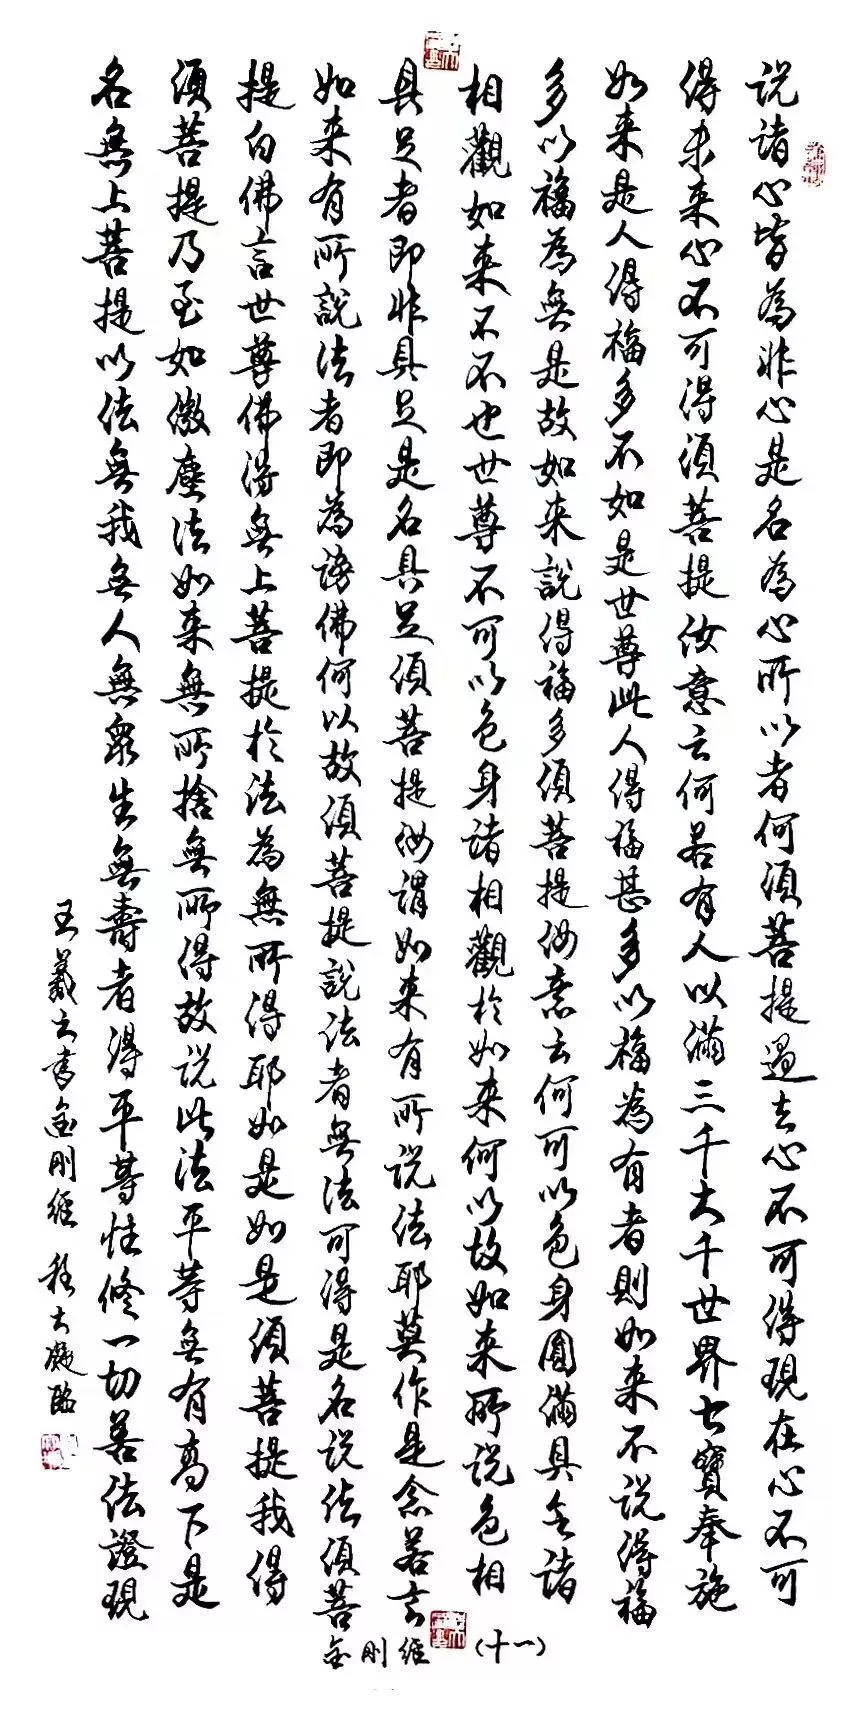 说诸心皆為非心是名為心所以者何须菩提過去心不可得現在心不可
得未来心不可得须菩提汝意云何若有人以滿三千大千世界七寶奉施
如来是人得福多不如是世尊此人得福甚多以福為有者則如来不说得福
多以福為無是故如来說得福多须菩提汝意云何可以色身圓滿具足諸
相觀如来不不也世尊不可以色身诸相觀於如来何以故如来所说色相
具足者即非具足是名具足须菩提汝謂如来有所说法耶莫作是念若言
如来有所説法者即為謗佛何以故须菩提説法者無法可得是名说法须菩
提白佛言世尊佛得無上菩提於法為無所得耶如是如是须菩提我得
须菩提乃至如微塵法如来無所捨無所得故说此法平等無有高下是
名無上菩提以法無我無人無衆生無壽者得平等性修一切善法證現
王羲之書金剛經 大凝臨
金剛經 (十一)